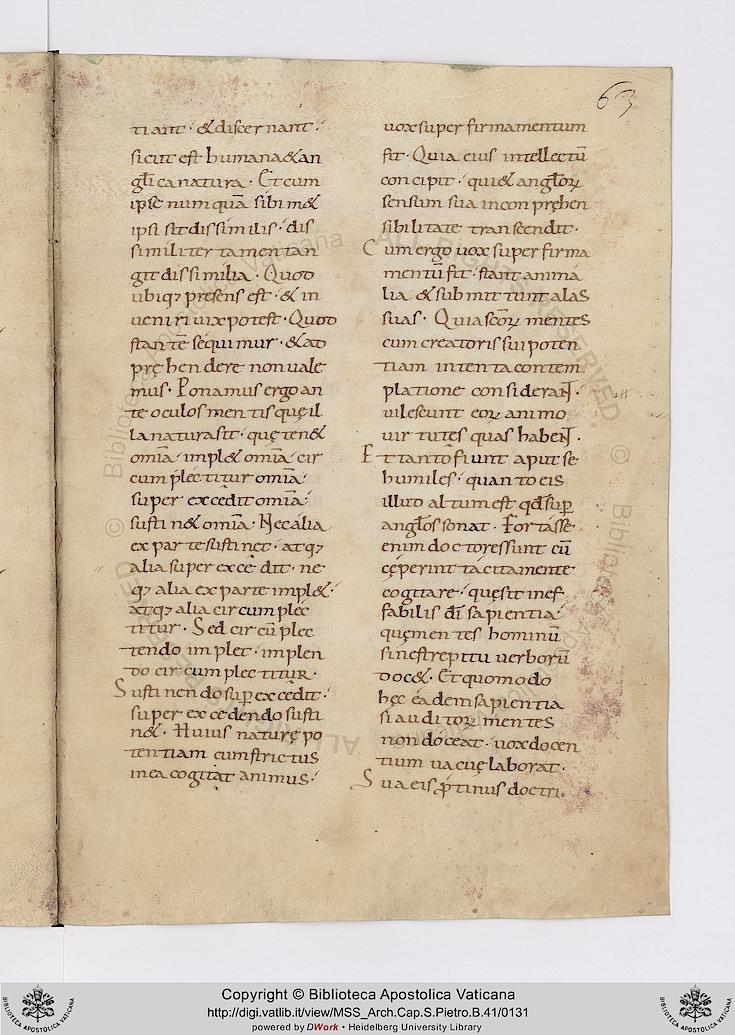 63
tiant · & discernant ·
sicut est humana & an
gl̄ica natura · Et cum
ipse numquā sibimet
ipsi sit dissimilis · dis
similiter tamen tan
git dissimilia · Quod
ubiq; presens est · & in
ueniri uix potest · Quod
stantē sequimur · & ad
pręhendere non uale
mus · Ponamus ergo an
te oculos mentis quę il
la natura sit · quę ten&
omīa · impl& omīa · cir
cumplectitur omīa ·
super excedit omīa ·
sustin& omīa · Nec alia
ex parte sustinet · atq;
alia superexcedit · ne
q; alia ex parte impl& ·
atq; alia circumplec
titur · Sed circū plec
tendo implet · implen
do circumplectitur ·
Sustinendo sup̄excedit ·
super excedendo susti
n& · Huius naturę po
tentiam cum strictus
in ea cogitat animus ·
uox super firmamentum
fit · Quia eius intellectū
concipit · qui & angl̄oꝝ
sensum sua inconpręhen
sibilitate transcendit ·
Cum ergo uox super firma
mentū fit · stant anima
lia & submittunt alas
suas · Quia sc̄oꝝ mentes
cum creatoris sui poten
tiam intenta contem
platione considerant ·
uilescunt eoꝝ animo
uirtutes quas habent ·
Et tanto fiunt aput se
humiles · quanto eis
illud altum est qd̄ sup̄
angl̄os sonat · Fortasse
enim doctores sunt cū
cęperint tacitamente
cogitare · quę sit inef
fabilis dī sapientia ·
quę mentes hominū
sine strepitu uerborū
doc& · Et quomodo
hęc eadem sapientia
si auditoꝝ mentes
non doceat · uox docen
tium uacuę laborat ·
Sua eis p̄tinus doctri
Copyright © Biblioteca Apostolica Vaticana
http://digi.vatlib.it/view/MSS_Arch.Cap.S.Pietro.B.41/0131
powered by DWork • Heidelberg University Library